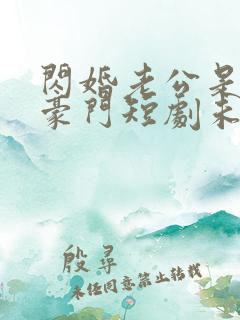 閃婚老公是
豪門短劇未
殷尋
未任同意禁止转载